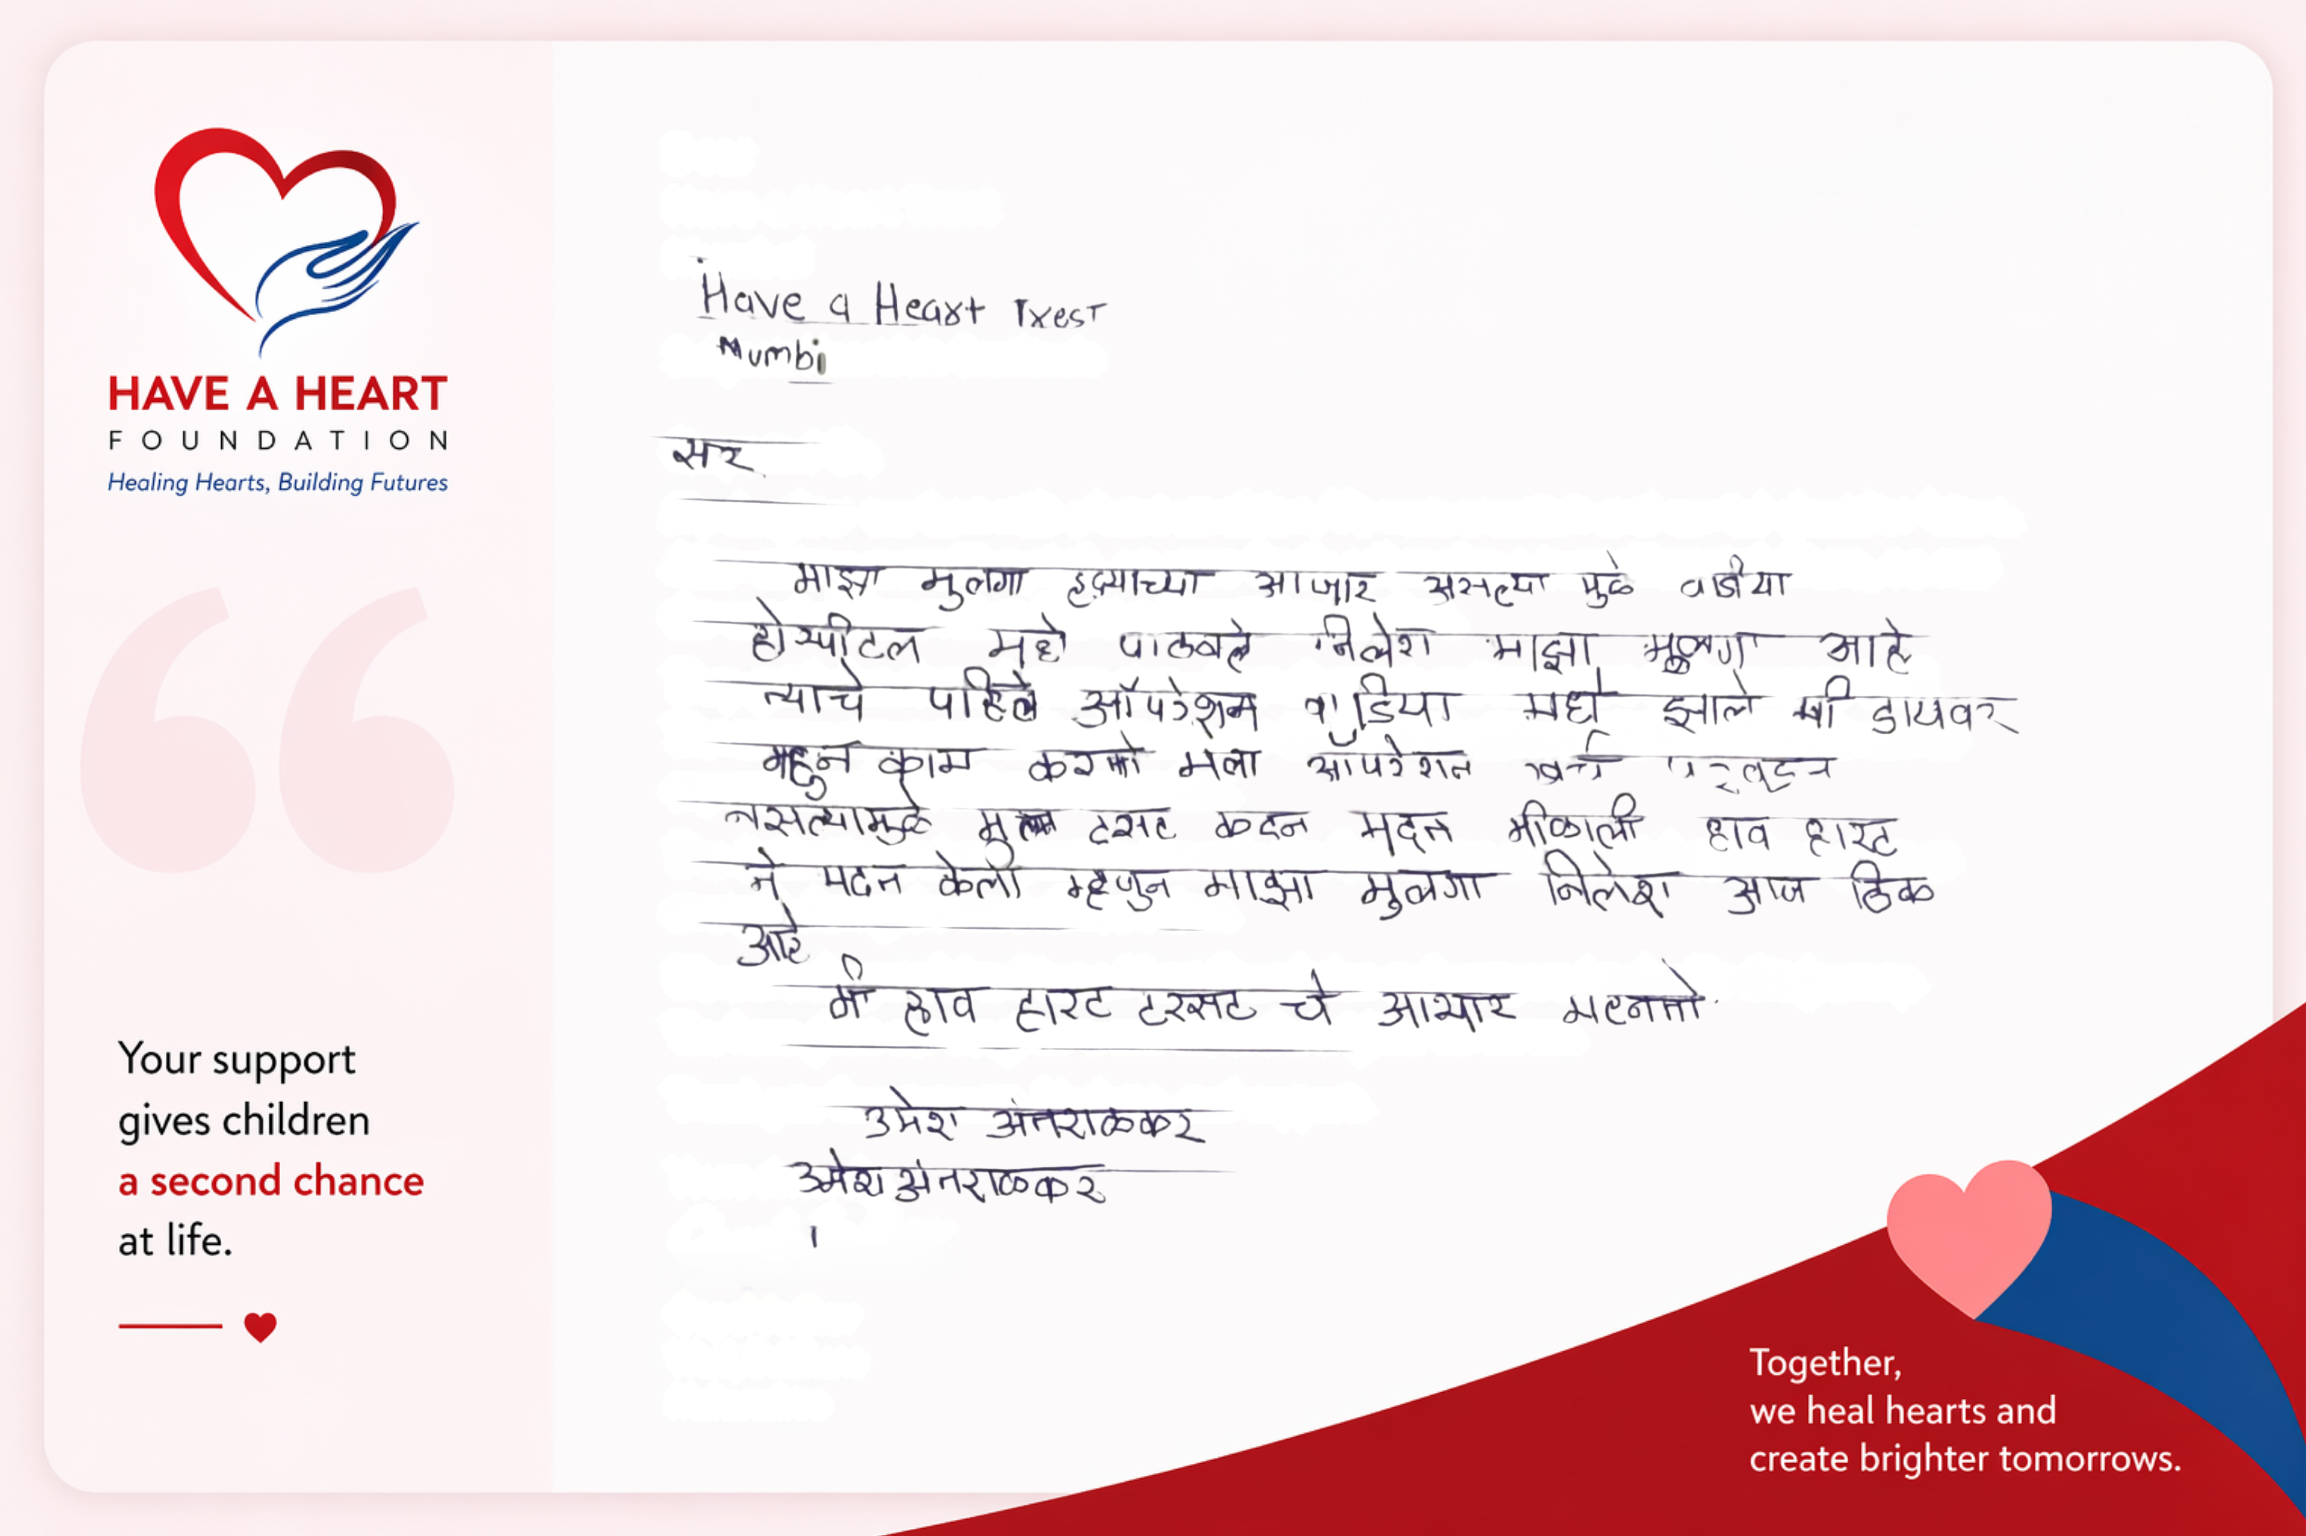 HAVE A HEART
FOUNDATION
Healing Hearts, Building Futures
Your support
gives children
a second chance
at life.
Have a Heart Trest
Mumbi
सर
माझा मुलगा हृदयाच्या आजार असल्या मुळे वाडीया
होस्पीटल मधे पाठवले निलेश माझा मुलगा आहे
त्याचे पहिले ऑपरेशन वाडिया मधे झाले मी डायवर
म्हुन काम करतो मला ऑपरेशन खर्च
नसल्यामुळे टरसट कडुन मदत मीळाली हाव हारट
ने मदत केली म्हणुन माझा मुलगा निलेश आज ठिक
आहे
मी हाव हारट टरसट चे आभार
उमेश अंतराळकर
उमेश अंतराळकर
Together,
we heal hearts and
create brighter tomorrows.